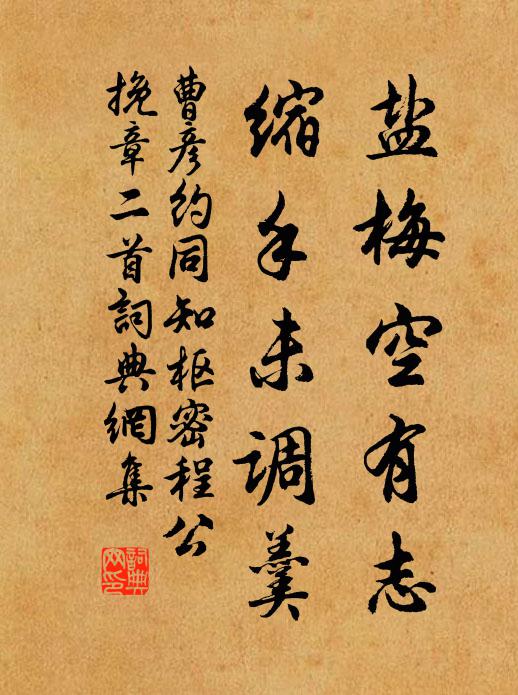 盐梅空有志
缩手未调羹
曹彦约同知枢密程公
挽章二首詞典網集
詞典
网印